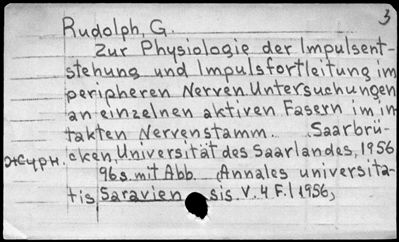 3
Rudolph, G.
Zur Physiologie der Impulsent-
stehung und Impulsfortleitung im
peripheren Nerven Untersuchungen
an einzelnen aktiven Fasern im in-
takten Nervenstamm. Saarbrü-
журн. cken, Universität des Saarlandes, 1956
96 s. mit Abb. (Annales universita-
tis Saraviensis V. 4 F. 1 1956,